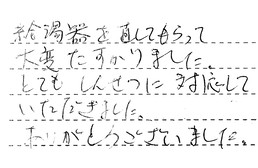 給湯器を直してもらって
大変たすかりました。
とてもしんせつに対応して
いただきました。
ありがとうございました。